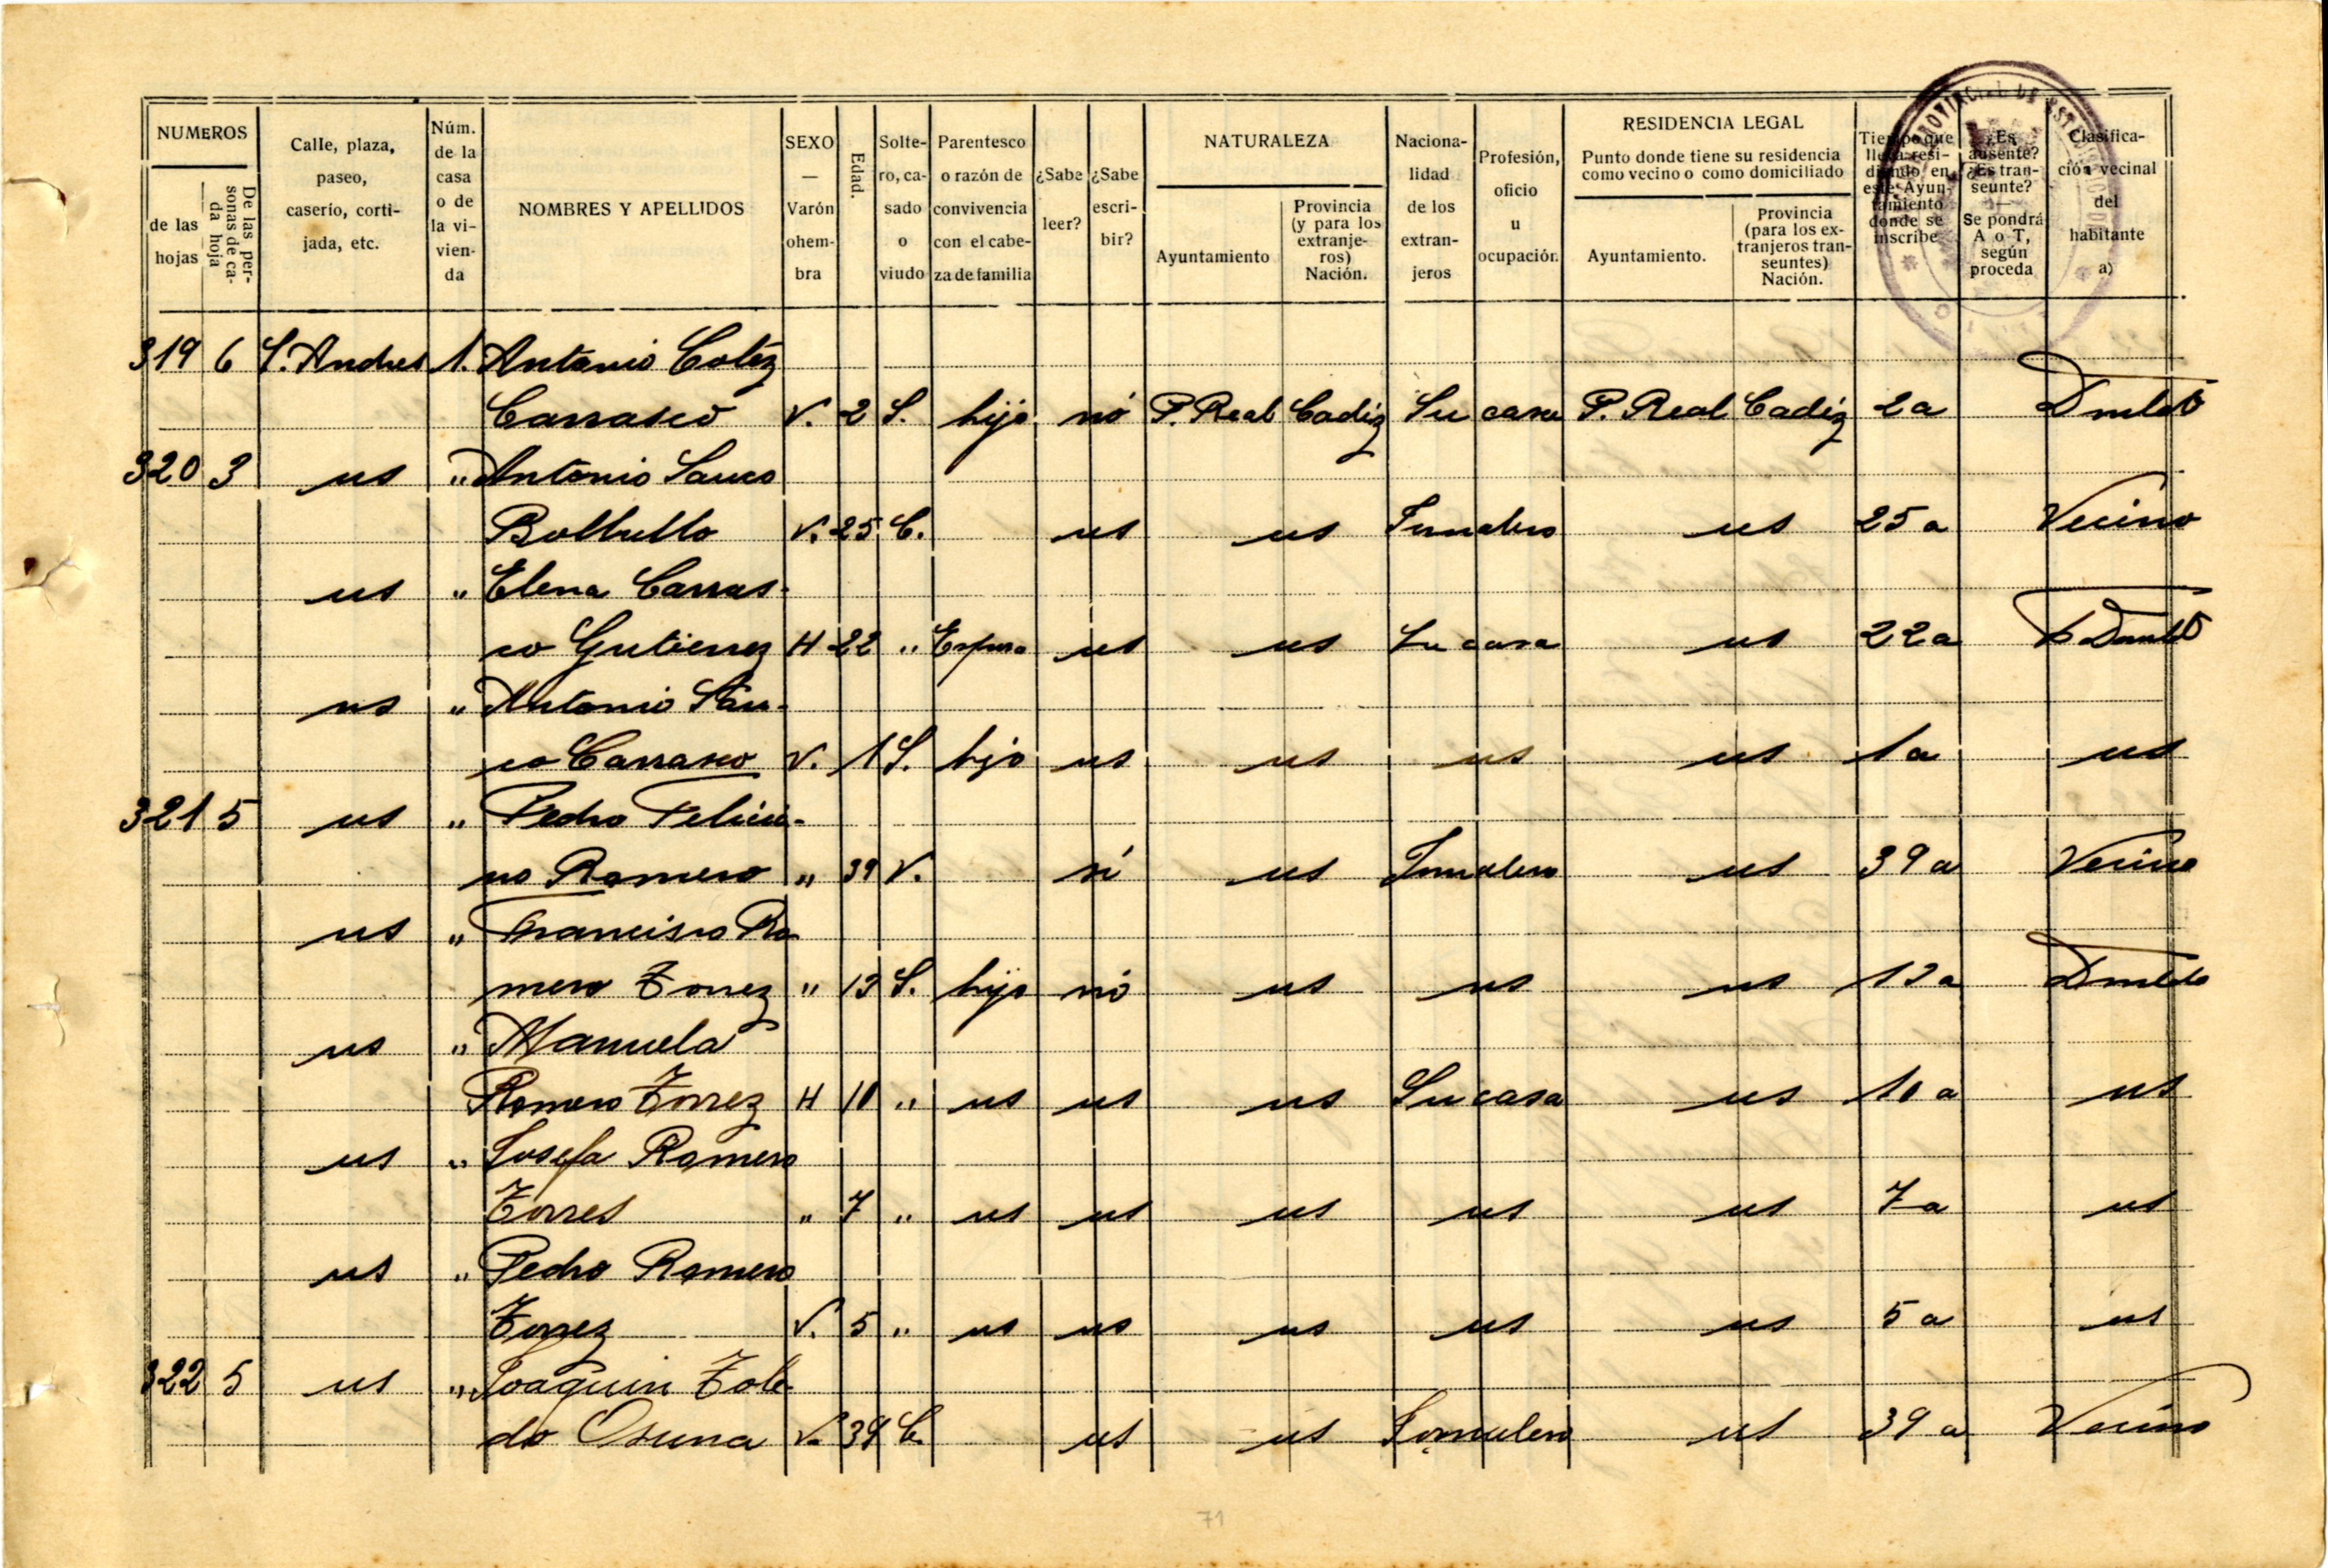 NUMEROS
de las hojas
De las personas de cada hoja
Calle, plaza, paseo, caserío, cortijada, etc.
Núm. de la casa o de la vivienda
NOMBRES Y APELLIDOS
SEXO — Varón o hembra
Edad.
Soltero, casado o viudo
Parentesco o razón de convivencia con el cabeza de familia
¿Sabe leer?
¿Sabe escribir?
NATURALEZA
Ayuntamiento
Provincia (y para los extranjeros) Nación.
Nacionalidad de los extranjeros
Profesión, oficio u ocupación.
RESIDENCIA LEGAL
Punto donde tiene su residencia como vecino o como domiciliado
Ayuntamiento.
Provincia (para los extranjeros transeuntes) Nación.
Tiempo que lleva residiendo en este Ayuntamiento donde se inscribe
¿Es ausente? ¿Es transeunte? — Se pondrá A o T, según proceda
Clasificación vecinal del habitante a)
319 6 S. Andres 1. Antonio Cotéz
Carrasco V. 2 S. hijo nó P. Real Cadiz Su casa P. Real Cadiz 2 a
320 3 us " Antonio Sauco
V. 25 C. us us us 25 a Vecino
us " Elena Carras-
co Gutierrez H 22 " Esposa us us Su casa us 22 a
us " Antonio Sau-
co Carrasco V. 1 S. hijo us us us us 1 a us
321 5 us " Pedro Felicia-
no Romero " 39 V. sí us Jornalero us 39 a Vecino
us " Francisco Ro
mero Torrez " 13 S. hijo nó us us us 13 a
us " Manuela
Romero Torrez H 10 " us us us Su casa us 10 a us
us " Josefa Romero
Torres " 7 " us us us us us 7 a us
us " Pedro Romero
Torrez V. 5 " us us us us us 5 a us
322 5 us " Joaquin Tole-
do Osuna V. 39 C. us us Jornalero us 39 a Vecino
71